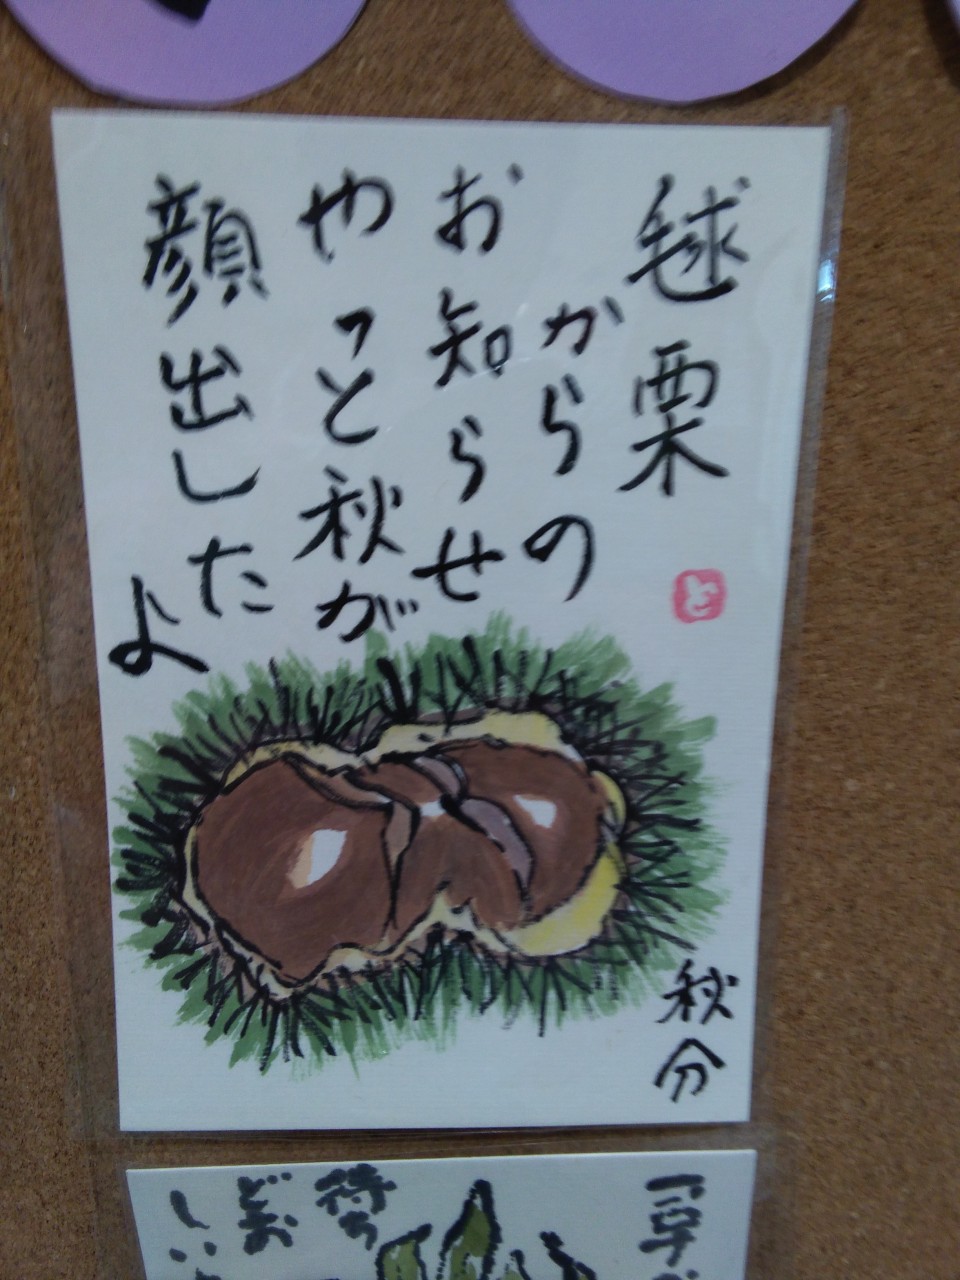 毬栗
からの
お知らせ
やっと秋が
顔出した
よ
と
秋分
待ち
どお
しい